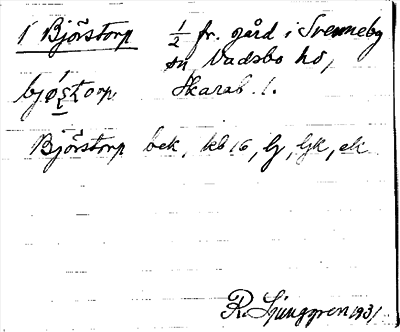 1 Björstorp ½ fr. gård i Svenneby
sn Vadsbo hd,
bjøstorp, Skarab. l.
Björstorp bek, kb 16, lj, ljk, ek
R. Ljunggren 1931